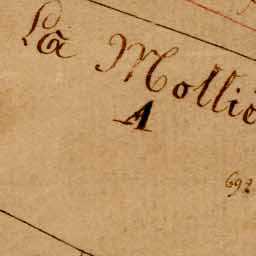 La Mollie
A
692